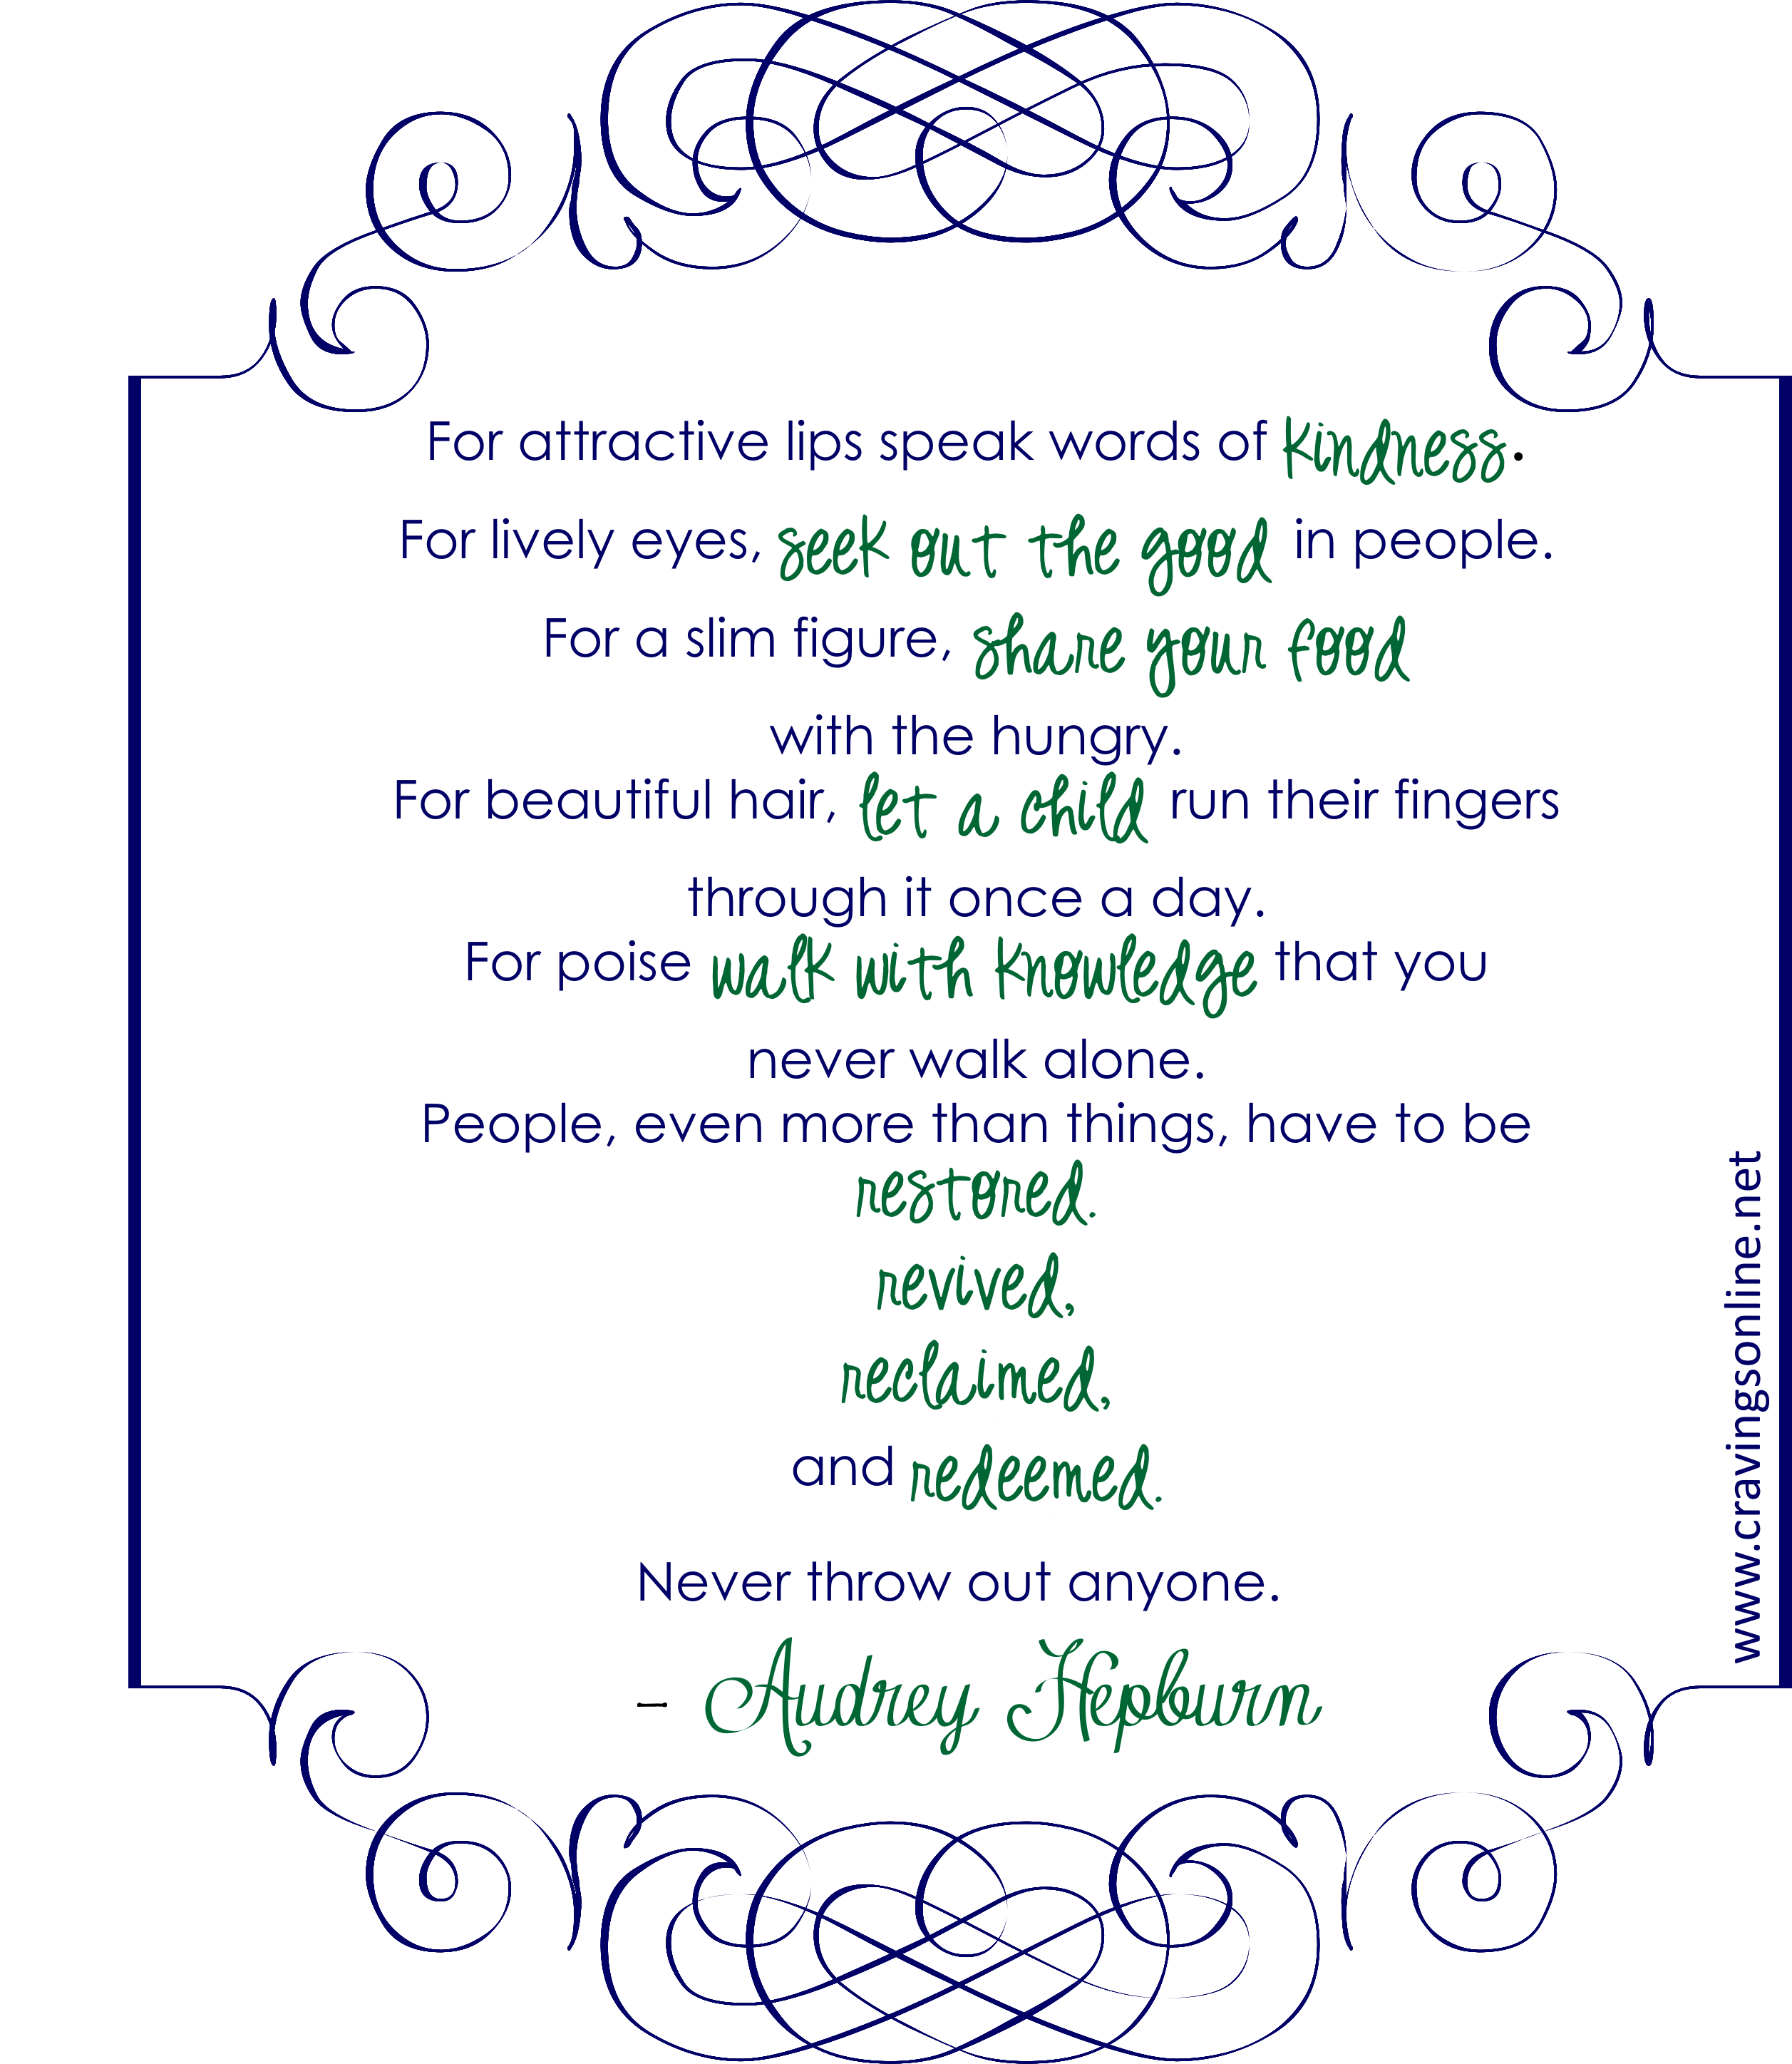 For attractive lips speak words of kindness.
For lively eyes, seek out the good in people.
For a slim figure, share your food
with the hungry.
For beautiful hair, let a child run their fingers
through it once a day.
For poise walk with knowledge that you
never walk alone.
People, even more than things, have to be
restored.
revived,
reclaimed,
and redeemed.
Never throw out anyone.
– Audrey Hepburn
www.cravingsonline.net